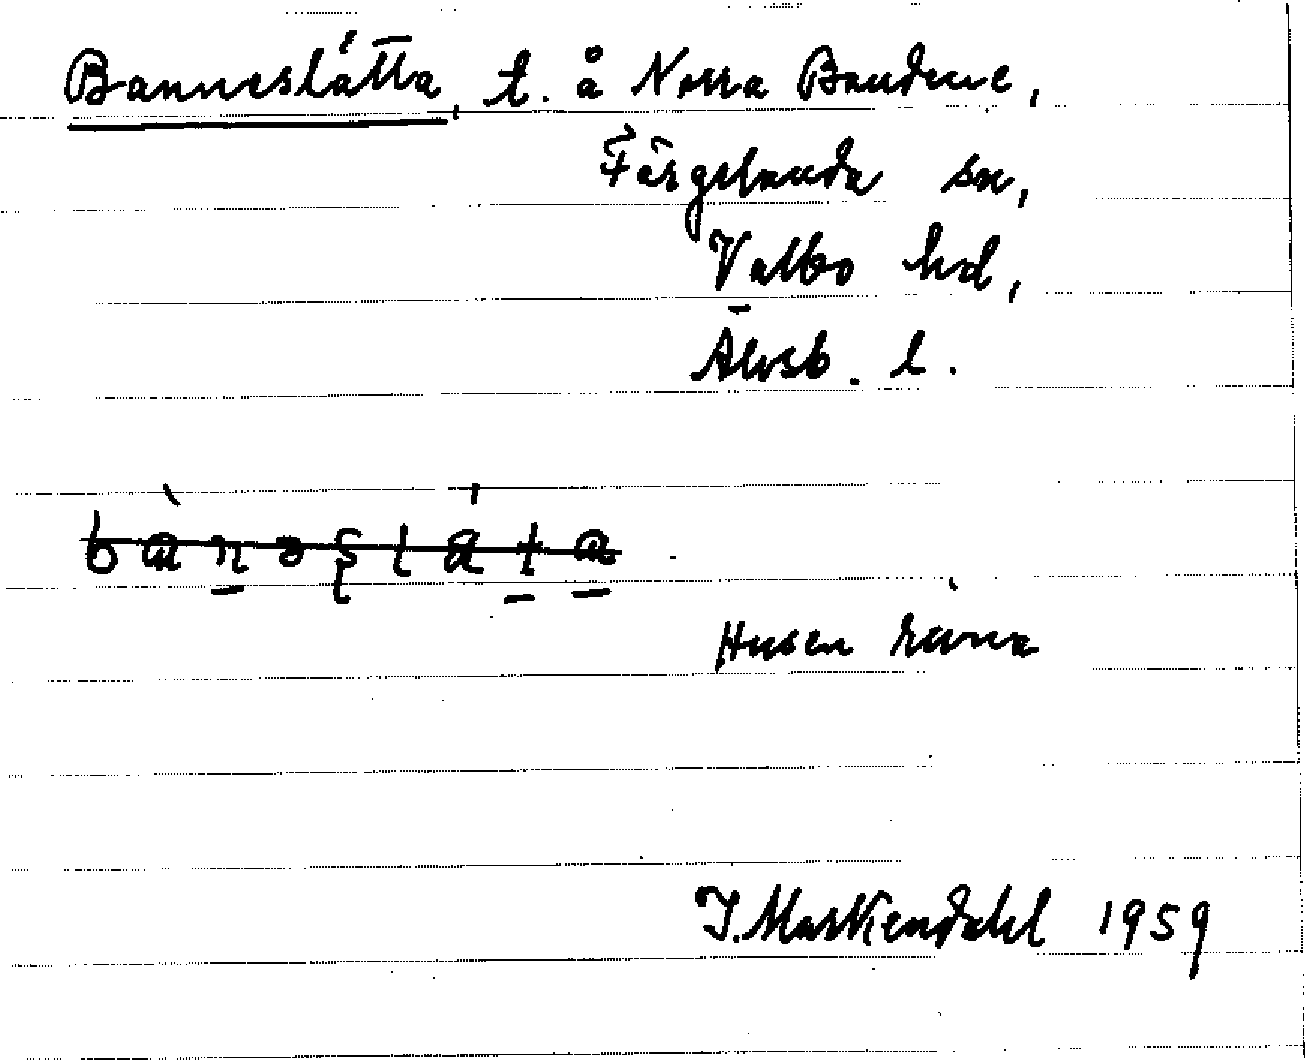 Banneslátta, t. å Norra Bandene,
Färgelanda sn,
Valbo hd,
Älvsb. l.
Husen rivna
J. Markendahl 1959